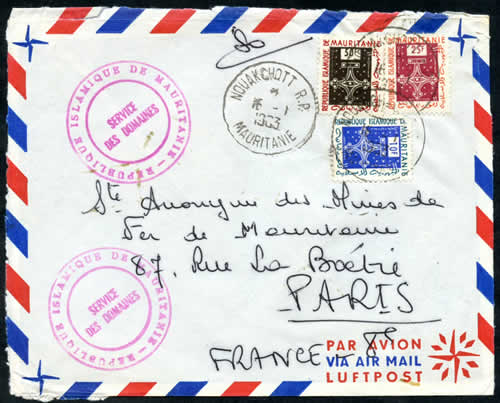 REPUBLIQUE ISLAMIQUE DE MAURITANIE
SERVICE
DES DOMAINES
NOUAKCHOTT R.P.
16 - 1
1963
MAURITANIE
REPUBLIQUE ISLAMIQUE DE MAURITANIE
50F
REPUBLIQUE ISLAMIQUE DE MAURITANIE
25F
REPUBLIQUE ISLAMIQUE DE MAURITANIE
10F
Sté Anonyme des Mines de
Fer de Mauritanie
87, Rue La Boétie
PARIS
FRANCE - 8e
REPUBLIQUE ISLAMIQUE DE MAURITANIE
SERVICE
DES DOMAINES
PAR AVION
VIA AIR MAIL
LUFTPOST